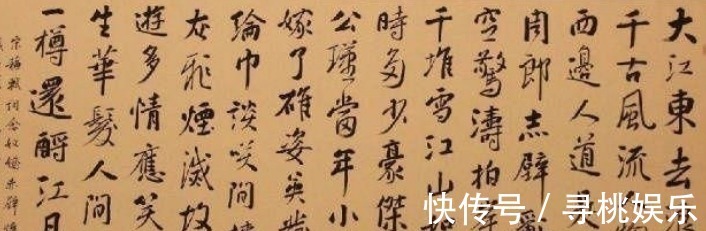 大江東去
千古風流
西邊人道是
周郎赤壁亂
空驚濤拍岸
千堆雪江山
時多少豪傑
公瑾當年小
嫁了雄姿英發
綸巾談笑間
灰飛煙滅故
遊多情應笑
生華髮人間
一樽還酹江月
宋蘇軾詞念奴嬌赤壁懷
快传号 / 寻桃娱乐